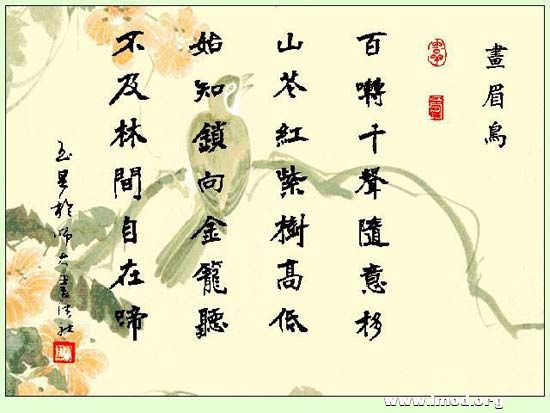 畫眉鳥
百囀千聲隨意移
山花紅紫樹高低
始知鎖向金籠聽
不及林間自在啼
於師大書法社
www.lmod.org